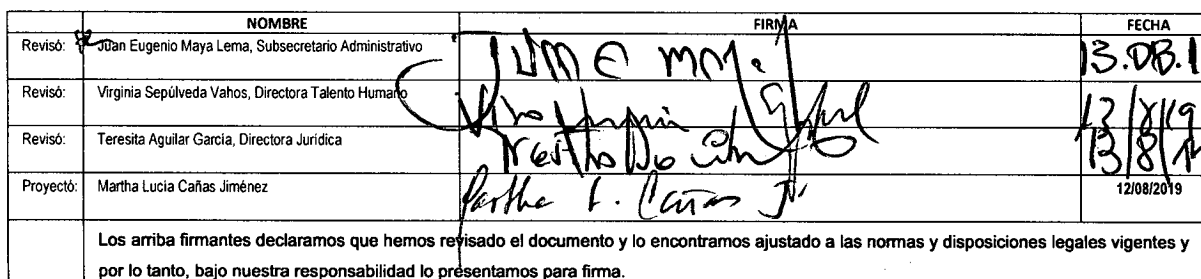 NOMBRE FIRMA FECHA
Revisó: Juan Eugenio Maya Lema, Subsecretario Administrativo
Revisó: Virginia Sepúlveda Vahos, Directora Talento Humano 13/8/19
Revisó: Teresita Aguilar García, Directora Jurídica 13/8/1
Proyectó: Martha Lucia Cañas Jiménez Martha L. Cañas J. 12/08/2019
Los arriba firmantes declaramos que hemos revisado el documento y lo encontramos ajustado a las normas y disposiciones legales vigentes y
por lo tanto, bajo nuestra responsabilidad lo presentamos para firma.